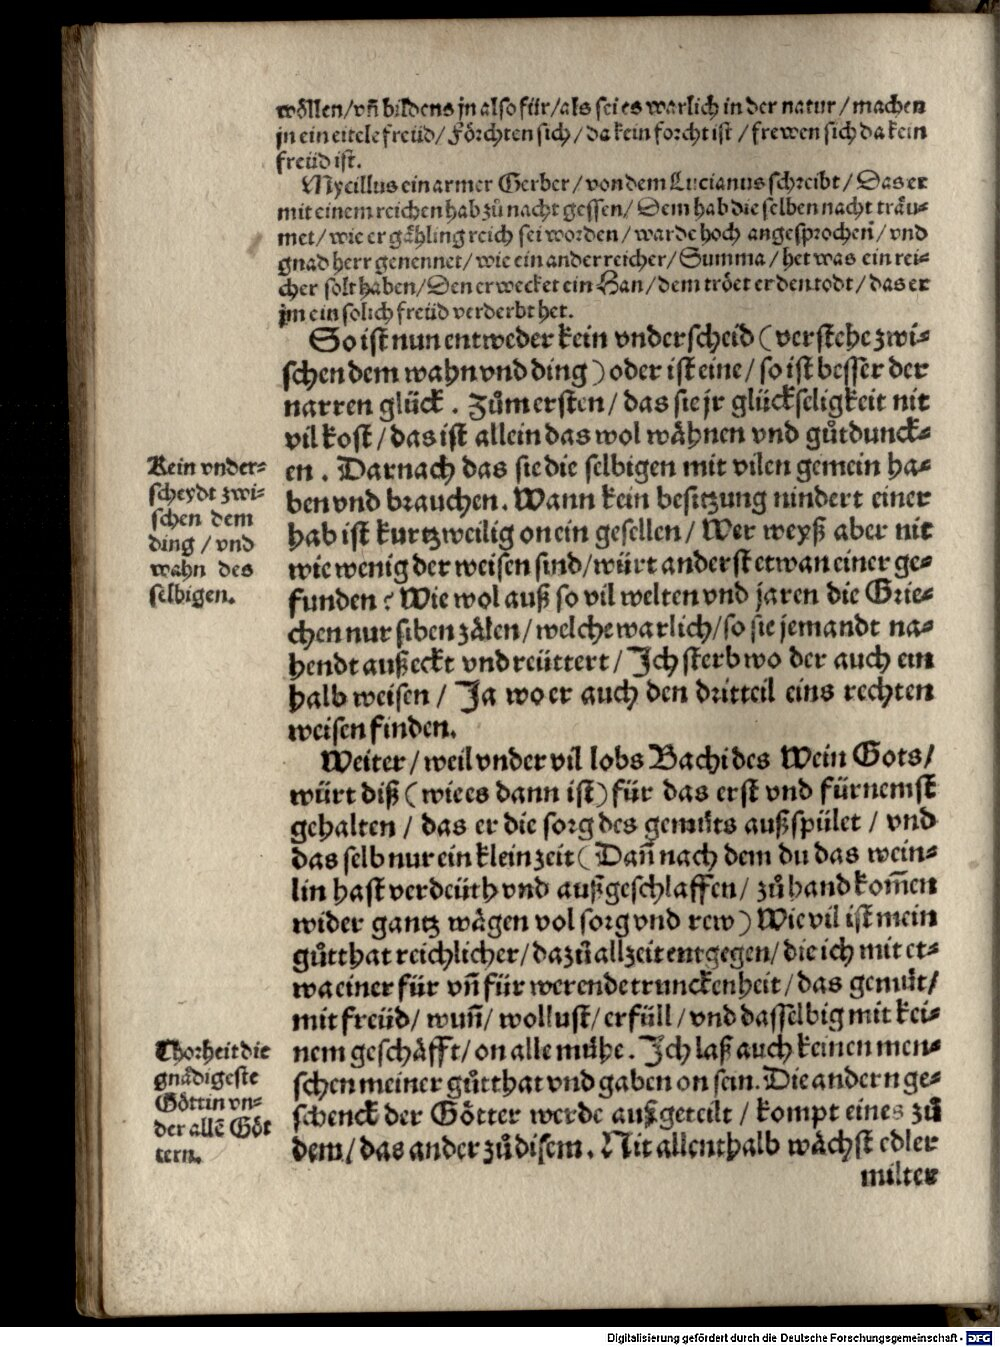 wöllen / vñ bildens jn also für / als sei es warlich in der natur / machen
jn ein eitele freüd / Förchten sich / da kein forcht ist / frewen sich da kein
freüd ist.
Mycillus ein armer Gerber / von dem Lucianus schreibt / Das er
mit einem reichen hab zů nacht gessen / Dem hab die selben nacht träu⸗
met / wie er gåhling reich sei worden / warde hoch angesprochen / vnd
gnad herr genennet / wie ein ander reicher / Summa / het was ein rei⸗
cher solt haben / Den erwecket ein Han / dem tröet er den todt / das er
jm ein solich freüd verderbt het.
So ist nun entweder kein vnderscheid (verstehe zwi⸗
schen dem wahn vnd ding) oder ist eine / so ist besser der
narren glück. Zům ersten / das sie jr glückseligkeit nit
vil kost / das ist allein das wol wåhnen vnd gůtdunck⸗
en. Darnach das sie die selbigen mit vilen gemein ha⸗
ben vnd brauchen. Wann kein besitzung nindert einer
hab ist kurtzweilig on ein gesellen / Wer weyß aber nit
wie wenig der weisen sind / würt anderst etwan einer ge⸗
funden? Wie wol auß so vil welten vnd jaren die Grie⸗
chen nur siben zålen / welche warlich / so sie jemandt na⸗
hendt außeckt vnd reüttert / Ich sterb wo der auch ein
halb weisen / Ja wo er auch den dritteil eins rechten
weisen finden.
Kein vnder⸗
scheydt zwi⸗
schen dem
ding / vnd
wahn des
selbigen.
Weiter / weil vnder vil lobs Bachi des Wein Gots /
würt diß (wie es dann ist) für das erst vnd fürnemst
gehalten / das er die sorg des gemůts außspület / vnd
das selb nur ein klein zeit (Dañ nach dem du das wein⸗
lin hast verdeüth vnd außgeschlaffen / zů hand kom̃en
wider gantz wågen vol sorg vnd rew) Wie vil ist mein
gůtthat reichlicher / dazů allzeit entgegen / die ich mit et⸗
wa einer für vñ für werende trunckenheit / das gemůt /
mit freüd / wuñ / wollust / erfüll / vnd dasselbig mit kei⸗
nem geschåfft / on alle mühe. Ich laß auch keinen men⸗
schen meiner gůtthat vnd gaben on sein. Die andern ge⸗
schenck der Götter werde außgeteilt / kompt eines zů
dem / das ander zů disem. Nit allenthalb wåchst edler
Thorheit die
gnådigeste
Göttin vn⸗
der allē Göt
tern.
milter
Digitalisierung gefördert durch die Deutsche Forschungsgemeinschaft - DFG